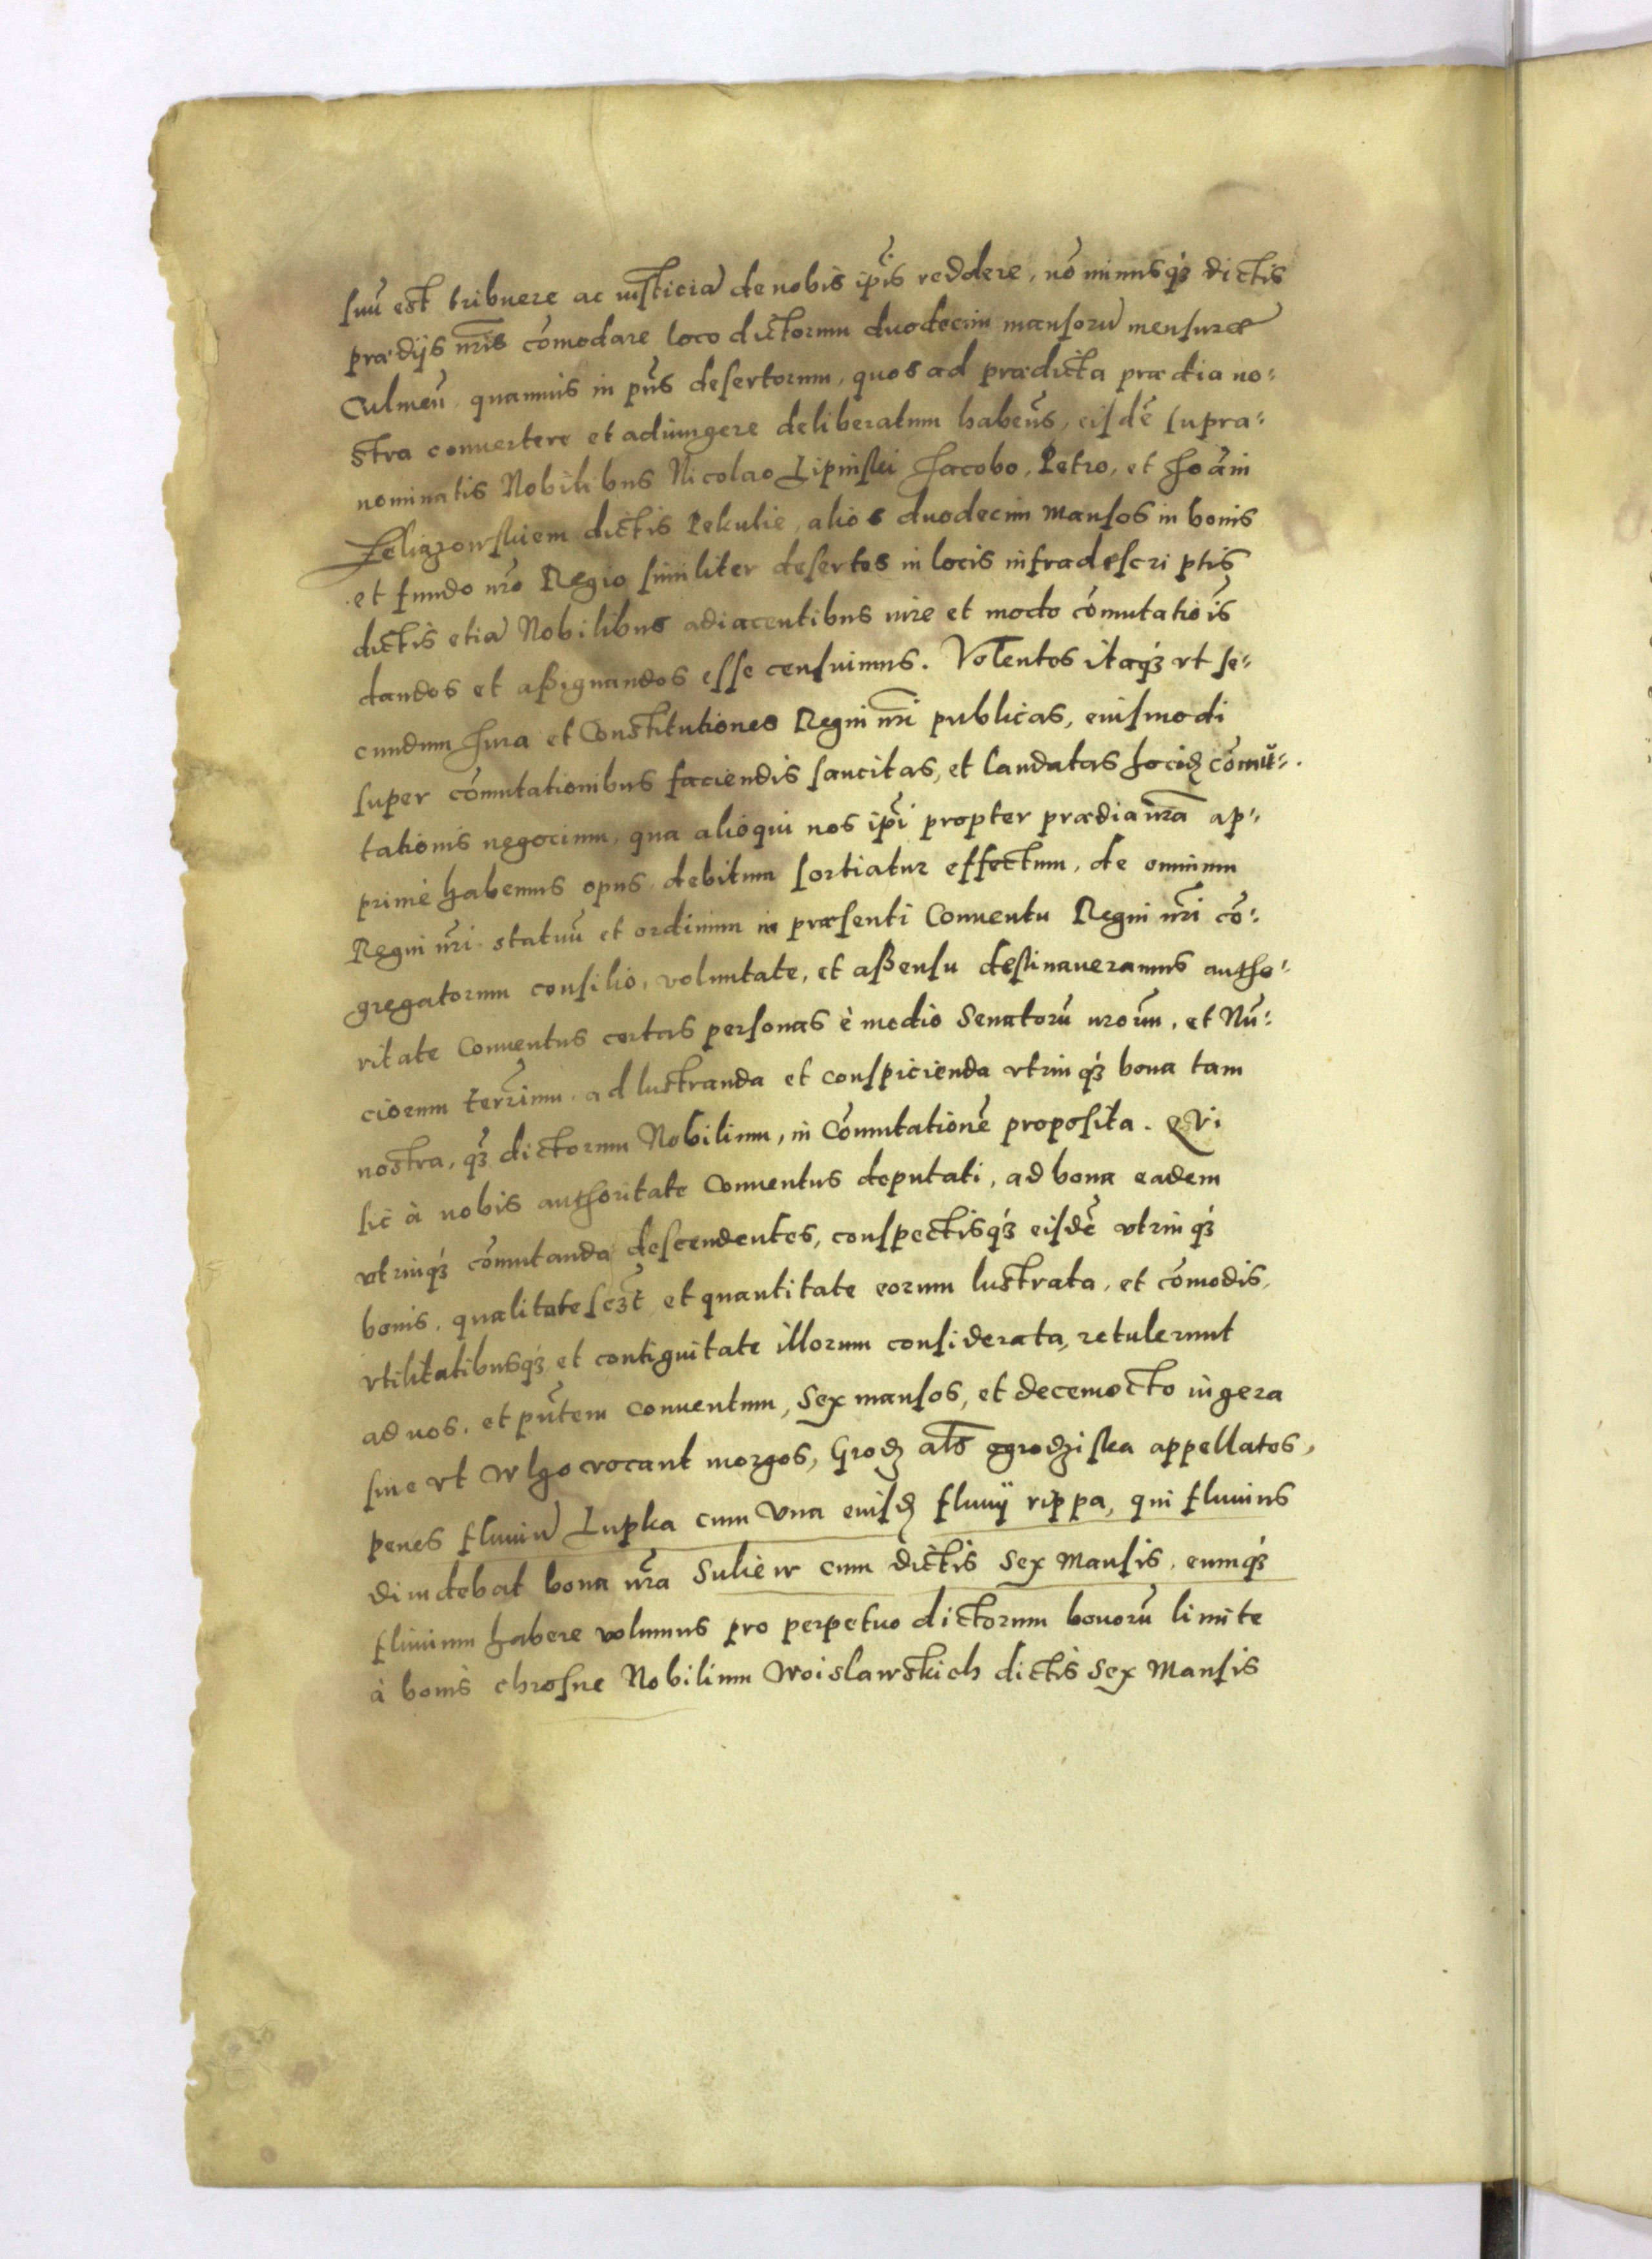 suũ est tribuere ac iusticiã de nobis ip̃is reddere, nõ minusq́ꝫ dictis
prædijs nr̃is cõmodare loco dictorum duodecim mansorũ mensuræ
Culmeñ, quamuis in pñs desertorum, quos ad prædicta prædia no=
stra conuertere et adiungere deliberatum habem̃s, eisdẽ supra=
nominatis Nobilibus Nicolao Lipinski Jacobo, Petro, et Joãni
Feliqzowskiem dictis Pekulie, alios duodecim mansos in bonis
et fundo nr̃o Regio similiter desertos in locis infradescriptis
dictis etiã Nobilibus adiacentibus iure et modo cõmutatiõis
dandos et aßignandos esse censuimus. Volentes itaq́ꝫ vt se=
cundum Jura et Constitutiones Regni nr̃i publicas, eiusmodi
super cõmutationibus faciendis sancitas, et laudatas hocid̃ cõmũ=
tationis negocium, qua alioqui nos ip̃i propter prædia nr̃a ap=
primè habemus opus, debitum sortiatur effectum, de omnium
Regni nr̃i statuũ et ordinum in præsenti Conuentu Regni nr̃i cõ=
gregatorum consilio, voluntate, et aßensu destinaueramus autho=
ritate Conuentus certas personas è medio Senatorũ nrorũm, et Nũ=
cioru̅m terrarũm, ad lustranda et conspicienda vtrinq́ꝫ bona tam
nostra, q̃ꝫ dictorum Nobilium, in Cõmutationẽ proposita. Qui
sic à nobis authoritate Conuentus deputati, ad bona eadem
vtrinq́ꝫ cõmutanda descendentes, conspectisq́ꝫ eisdẽ vtrinq́ꝫ
bonis, qualitate scꝫt̃ et quantitate eorum lustrata, et cõmodis,
vtilitatibusq́ꝫ et contiguitate illorum considerata, retulerunt
ad nos, et pñtem conuentum, Sex mansos, et decemocto iugera
siue vt wlgo vocant morgos, Grodz̨ als̃ grodziska appellatos,
penes fluuiũ Lupka cum vna eiusd̃ fluuij rippa, qui fluuius
diuidebat bona nr̃a Suliew cum dictis Sex Mansis, eumq́ꝫ
fluuium habere volumus pro perpetuo dictorum bonorũ limite
à bonis chrosne Nobilium Woislawskich dictis Sex Mansis